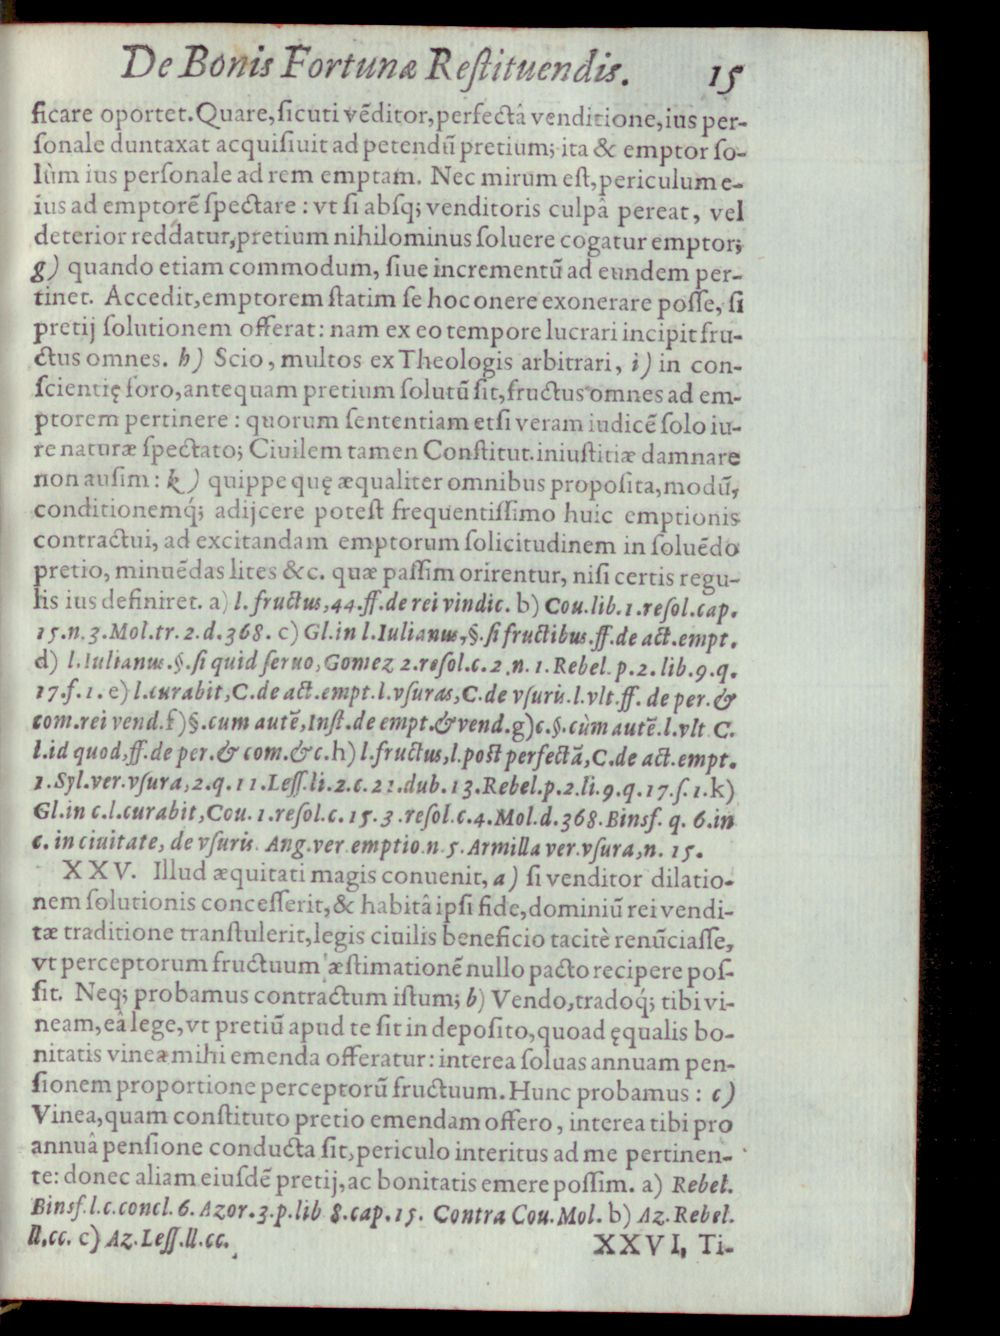 De Bonis Fortunæ Reſtituendis. 15
ficare oportet. Quare, ſicuti vẽditor, perfectâ venditione, ius per-
ſonale duntaxat acquiſiuit ad petendũ pretium; ita & emptor ſo-
lùm ius perſonale ad rem emptam. Nec mirum eſt, periculum e-
ius ad emptorẽ ſpectare : vt ſi abſq; venditoris culpâ pereat, vel
deterior reddatur, pretium nihilominus ſoluere cogatur emptor;
g) quando etiam commodum, ſiue incrementũ ad eundem per-
tinet. Accedit, emptorem ſtatim ſe hoc onere exonerare poſſe, ſi
pretij ſolutionem offerat: nam ex eo tempore lucrari incipit fru-
ctus omnes. h) Scio, multos ex Theologis arbitrari, i) in con-
ſcientię foro, antequam pretium ſolutũ ſit, fructus omnes ad em-
ptorem pertinere : quorum ſententiam etſi veram iudicẽ ſolo iu-
re naturæ ſpectato; Ciuilem tamen Conſtitut. iniuſtitiæ damnare
non auſim : k) quippe quę æqualiter omnibus propoſita, modũ,
conditionemq́; adijcere poteſt frequentiſſimo huic emptionis
contractui, ad excitandam emptorum ſolicitudinem in ſoluẽdo
pretio, minuẽdas lites &c. quæ paſſim orirentur, niſi certis regu-
lis ius definiret. a) l. fructus, 44. ff. de rei vindic. b) Cou. lib. 1. reſol. cap.
15. n. 3. Mol. tr. 2. d. 368. c) Gl. in l. Iulianus, §. ſi fructibus. ff. de act. empt.
d) l. Iulianus. §. ſi quid ſeruo, Gomez 2. reſol. c. 2. n. 1. Rebel. p. 2. lib. 9. q.
17. ſ. 1. e) l. curabit, C. de act. empt. l. vſuras, C. de vſuris. l. vlt. ff. de per. &
com. rei vend. f) §. cum autẽ, Inſt. de empt. & vend. g) c. §. cùm autẽ. l. vlt. C.
l. id quod, ff. de per. & com. &c. h) l. fructus, l. poſt perfectã, C. de act. empt.
1. Syl. ver. vſura, 2. q. 11. Leſſ. li. 2. c. 21. dub. 13. Rebel. p. 2. li. 9. q. 17. ſ. 1. k)
Gl. in c. l. curabit, Cou. 1. reſol. c. 15. 3. reſol. c. 4. Mol. d. 368. Binsf. q. 6. in
c. in ciuitate, de vſuris. Ang. ver. emptio. n. 5. Armilla ver. vſura, n. 15.
XXV. Illud æquitati magis conuenit, a) ſi venditor dilatio-
nem ſolutionis conceſſerit, & habitâ ipſi fide, dominiũ rei vendi-
tæ traditione tranſtulerit, legis ciuilis beneficio tacitè renũciaſſe,
vt perceptorum fructuum æſtimationẽ nullo pacto recipere poſ-
ſit. Neq; probamus contractum iſtum; b) Vendo, tradoq́; tibi vi-
neam, eâ lege, vt pretiũ apud te ſit in depoſito, quoad ęqualis bo-
nitatis vinea mihi emenda offeratur: interea ſoluas annuam pen-
ſionem proportione perceptorũ fructuum. Hunc probamus : c)
Vinea, quam conſtituto pretio emendam offero, interea tibi pro
annuâ penſione conducta ſit, periculo interitus ad me pertinen-
te: donec aliam eiuſdẽ pretij, ac bonitatis emere poſſim. a) Rebel.
Binsf. l. c. concl. 6. Azor. 3. p. lib. 8. cap. 15. Contra Cou. Mol. b) Az. Rebel.
ll. cc. c) Az. Leſſ. ll. cc.
XXVI, Ti-